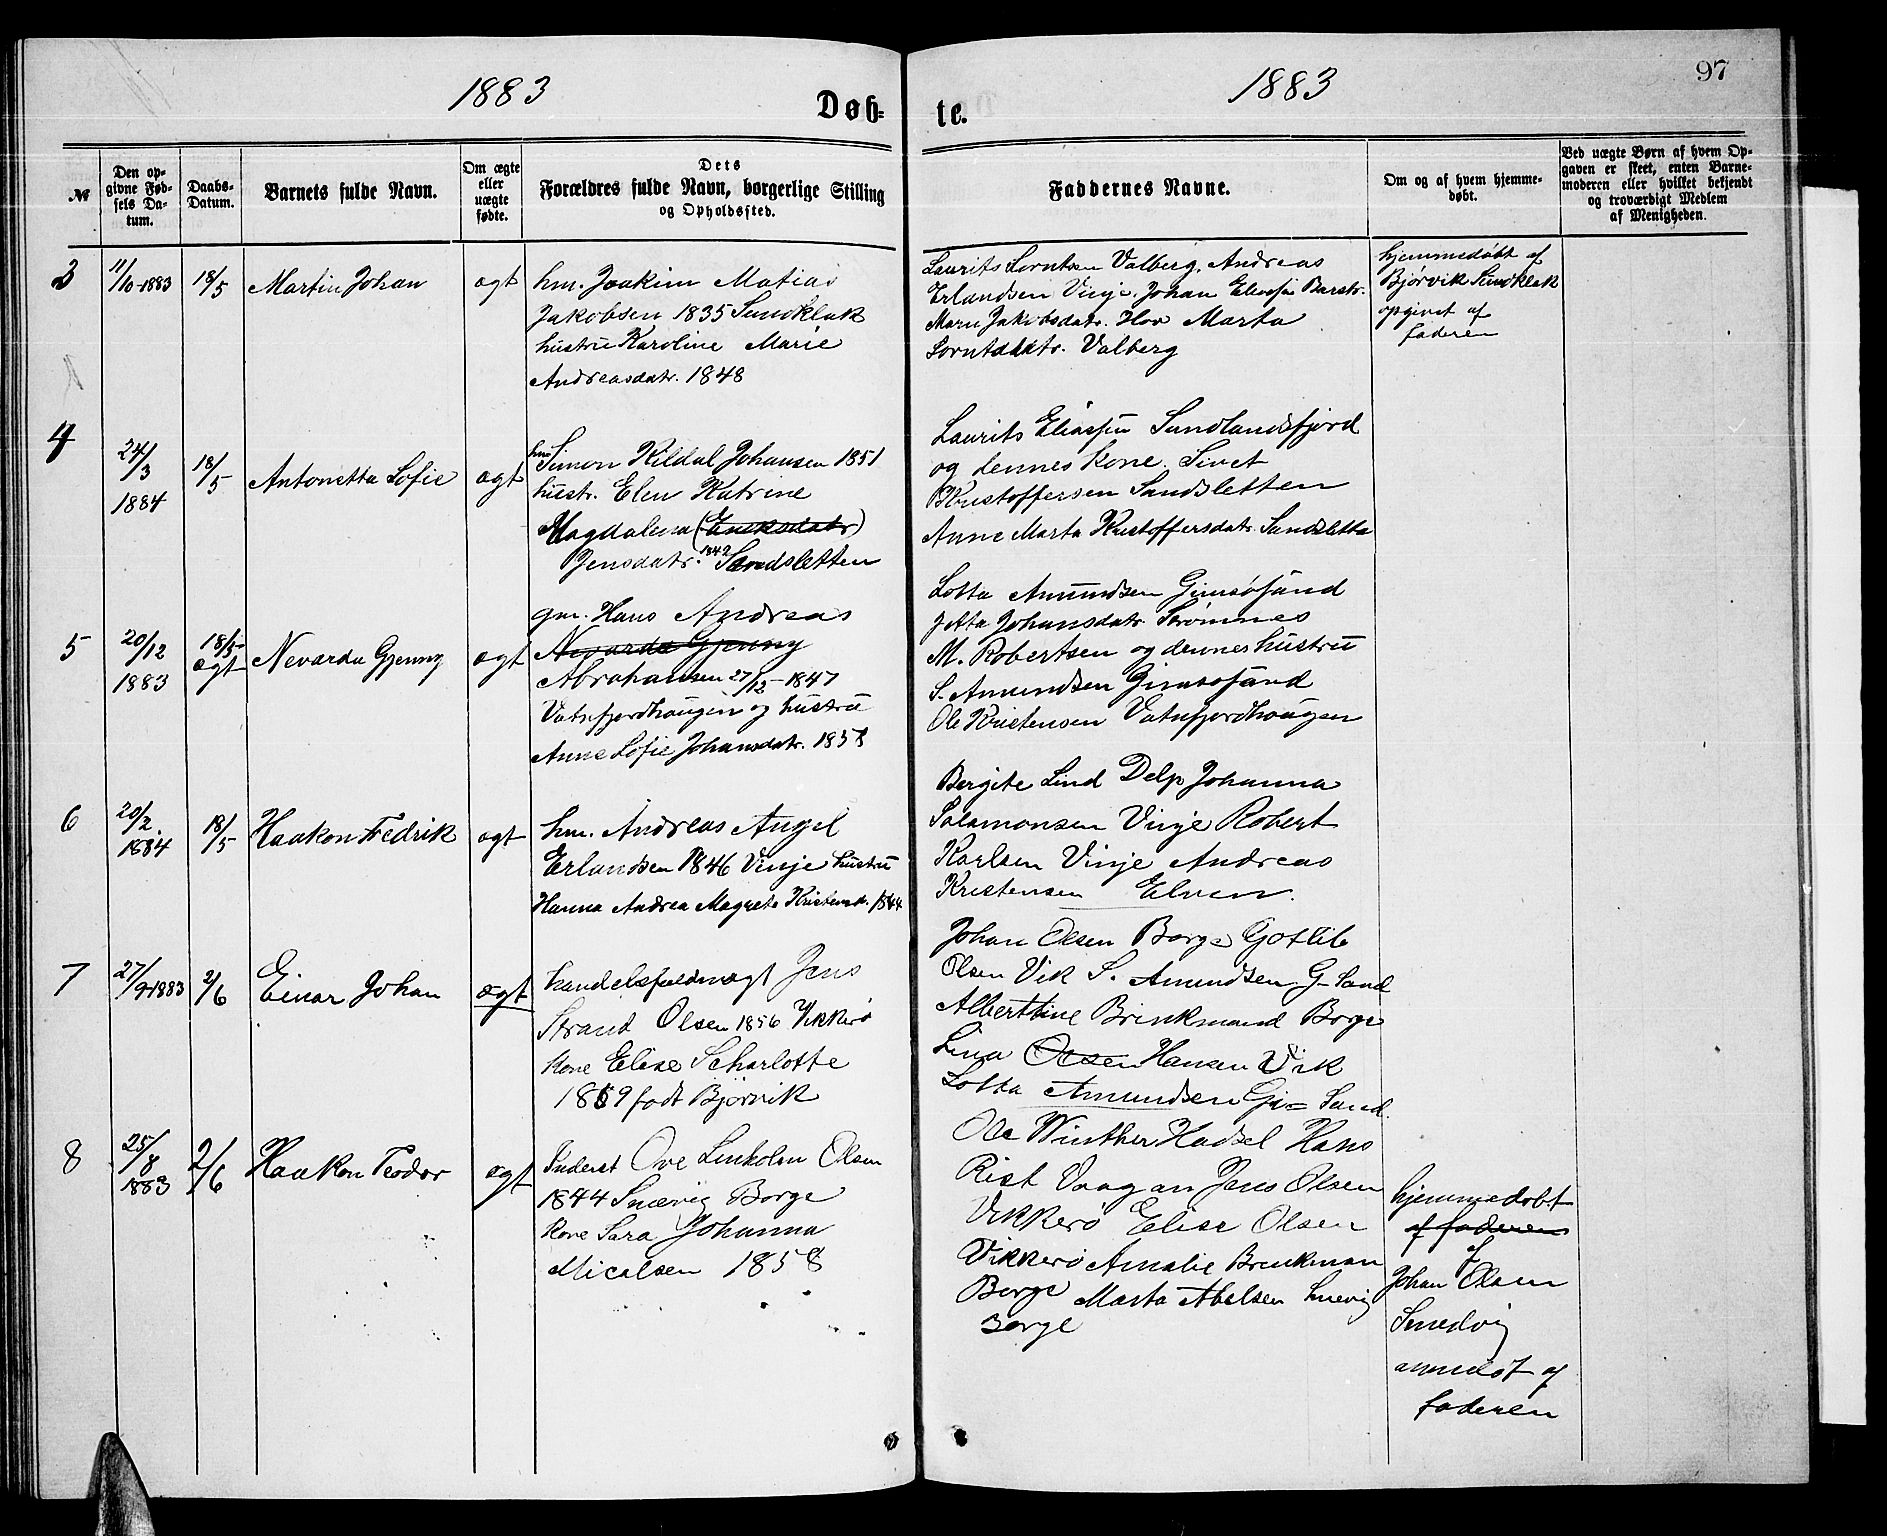 1883
Døb-
№
Den op-
givne Fød-
sels Da-
tum.
Daabs-
Datum.
Barnets fulde Navn.
Om ægte
eller
uægte
fødte.
Dets
Forældres fulde Navn, borgerlige Stilling
og Opholdssted.
3
11/10-1883
18/5
Martin Johan
ægt
hm. Joakim Matias
Jakobsen 1835 Sundklak
hustru Karoline Marie
Andreasdatr. 1848
4
24/3
1884
18/5
Antonetta Sofie
ægt
hm Simon Kildal Johansen 1851
hustr. Elen Katrine
Magdalena (Eneksdatr)
Jensdatr. 1842 Sandsletten
5
20/12
1883
18/5
ægt
Nevarda Gjenny
ægt
gm. Hans Andreas
Nevarda Gjenny
Abrahansen 27/12-1847
Vatnfjordhaugen og hustru
Anne Sofie Johansdatr. 1858
6
20/2.
1884
18/5
Haakon Fredrik
ægt
hm. Andreas Angel
Erlandsen 1846 Vinje hustru
Hanna Andrea Magrete Kristensd. 1844
7
27/9-1883
2/6
Einar Johan
ægt
handelsfuldmægt Jens
Strand Olsen 1856 Vikkerø
Kone Elise Scharlotte
1859 født Bjørvik
8
25/8
1883
2/6
Haakon Teodor
ægt
Inderst Ove Linkolen Olsen
1844 Snævig Borge
Kone Sara Johanna
Micalsen 1858
1883
97
te.
Faddernes Navne.
Om og af hvem hjemme-
døbt.
Ved uægte Børn af hvem Op-
gaven er skeet, enten Barne-
moderen eller hvilket bekjendt
og troværdigt Medlem
af Menigheden.
Laurits Lorntsen Valberg. Andreas
Erlandsen Vinje. Johan Eliassen Barstr.
Maru Jakobsdatr. Hov Marta
Lorntsdatr. Valberg
hjemmedøbt af
Bjørvik Sundklak
opgivet af
faderen
Laurits Eliassen Sundlandsfjord
og dennes kone. Sivet
Kristoffersen Sandsletten
Anne Marta Kristoffersdatr. Sandsletta
Lotta Amundsen Gimsøsand
Jetta Johansdatr Strømnes
M. Robertsen og dennes hustru
S. Amundsen Gimsøsand
Ole Kristensen Vatnfjordhaugen
Bergite Lind Delp Johanna
Salamonsen Vinje Robert
Karlsen Vinje Andreas
Kristensen Elven.
Johan Olsen Borge Gotlib
Olsen Vik S. Amundsen G-Sand
Alberttine Brinkmand Borge
Lina Olsen Hansen Vik
Lotta Amundsen Gi= Sand.
Ole Winther Hadsel Hans
Rist Vaagan Jens Olsen
Vikkerø Elise Olsen
Vikkerø Amalie Brinkman
Borge Marta Abelsen Snevig
Borge
hjemmedøbt
af faderen
af
Johan Olsen
Smedvig
anmeldt af
faderen